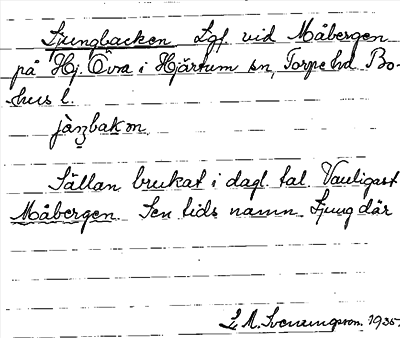 Ljungbacken Lgf. vid Måbergen
på Hj. Övra i Hjärtum sn, Torpe hd. Bo-
hus l.
jàŋbakən
Sällan brukat i dagl. tal. Vanligast
Måbergen. Sen tids namn. Ljung där
L. A. Svenungsson. 1935.